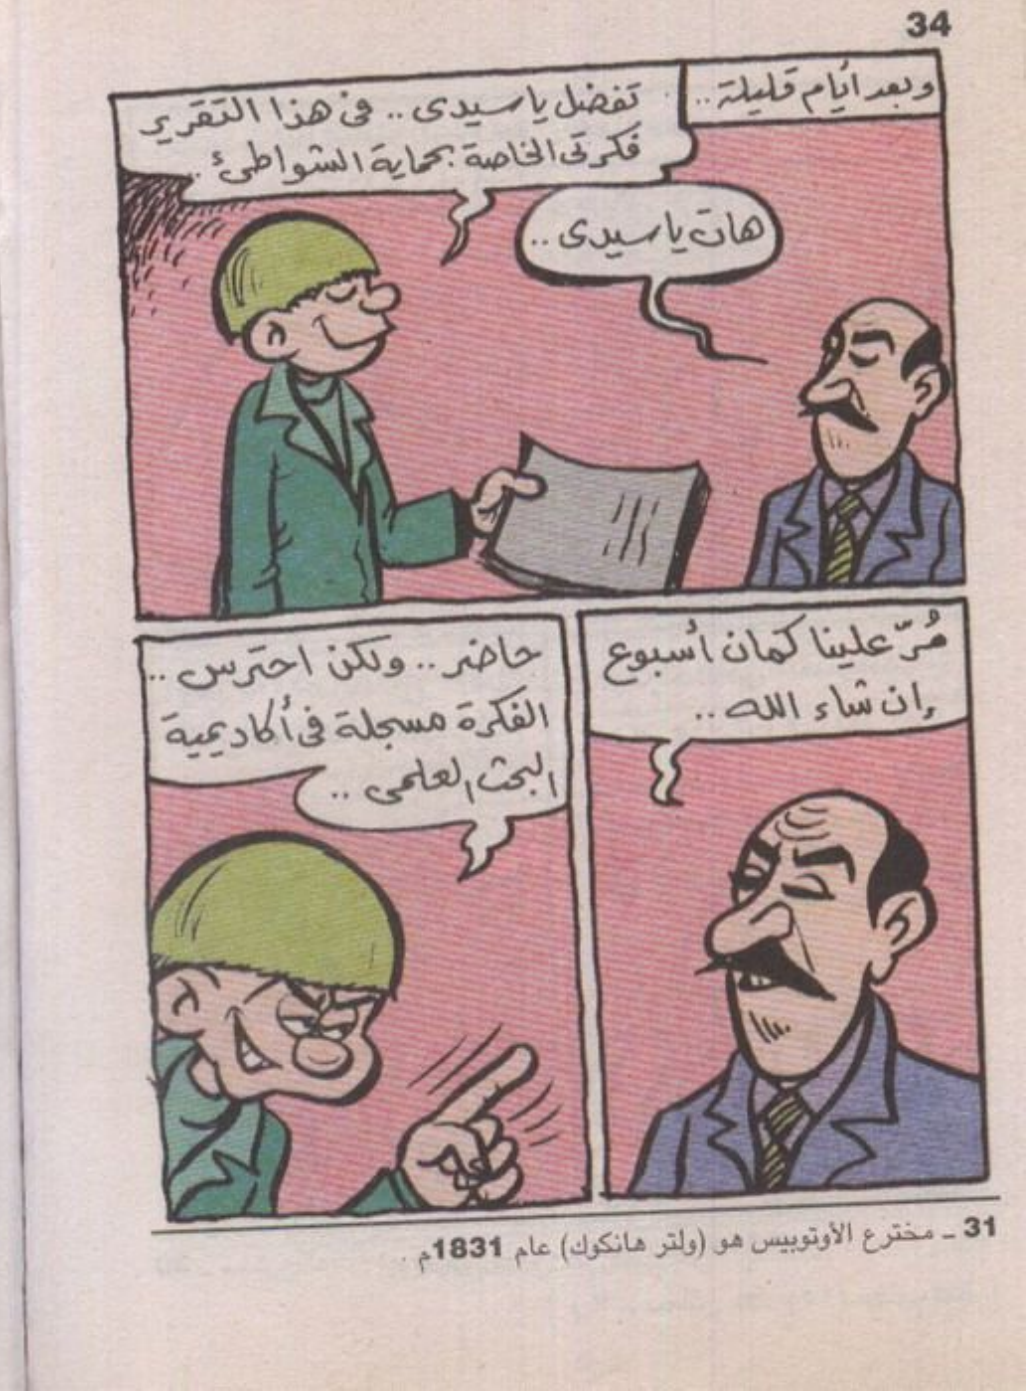 34
وبعد أيام قليلة..
تفضل يا سيدى .. فى هذا التقرير
فكرتى الخاصة بحماية الشواطئ ..
هات يا سيدى ..
مُرّ علينا كمان أسبوع
إن شاء الله ..
حاضر .. ولكن احترس ..
الفكرة مسجلة فى أكاديمية
البحث العلمى ..
31 ـ مخترع الأوتوبيس هو (ولتر هانكوك) عام 1831م .